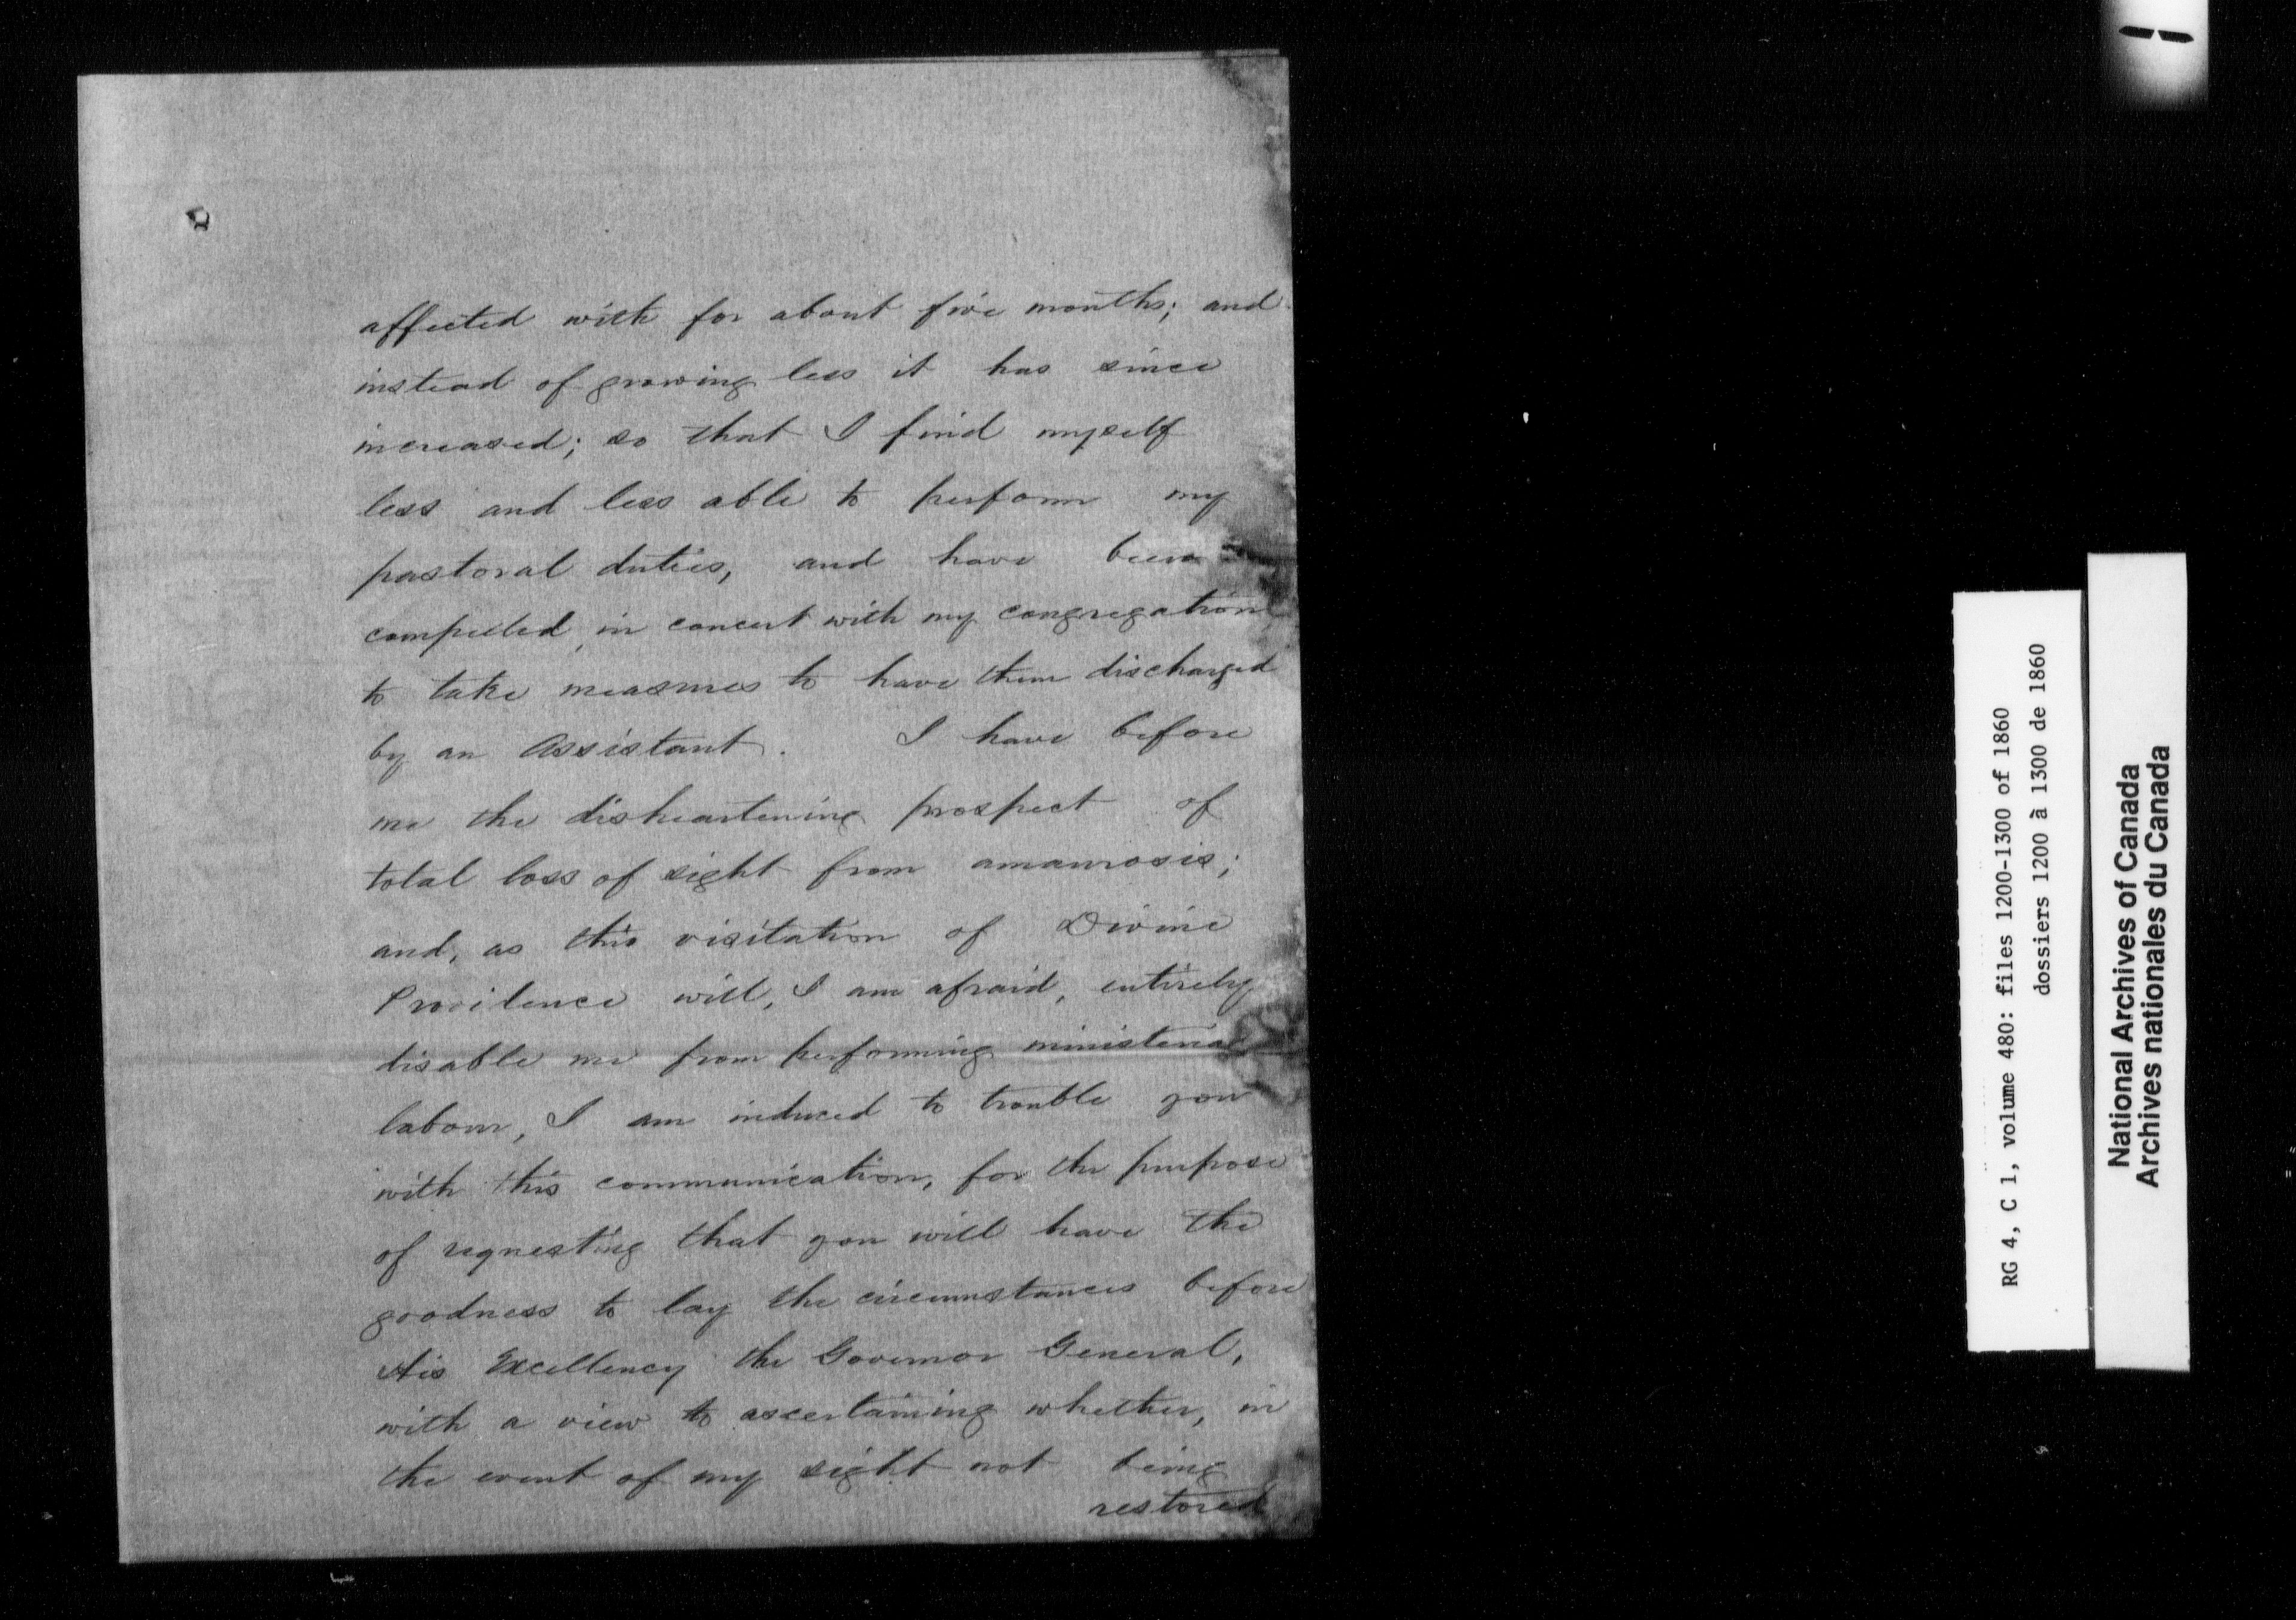 affected with for about five months; and
instead of growing less it has since
increased; so that I find myself
less and less able to perform my
pastoral duties, and have been
compelled, in concert with my congregation,
to take measures to have them discharged
by an Assistant. I have before
me the disheartening prospect of
total loss of sight from amaurosis;
and, as this visitation of Divine
Providence will, I am afraid, entirely
disable me from performing ministerial
labour, I am induced to trouble you
with this communication, for the purpose
of requesting that you will have the
goodness to lay the circumstances before
His Excellency the Governor General,
with a view to ascertaining whether, in
the event of my sight not being
restored
RG 4, C 1, volume 480: files 1200-1300 of 1860
dossiers 1200 à 1300 de 1860
National Archives of Canada
Archives nationales du Canada